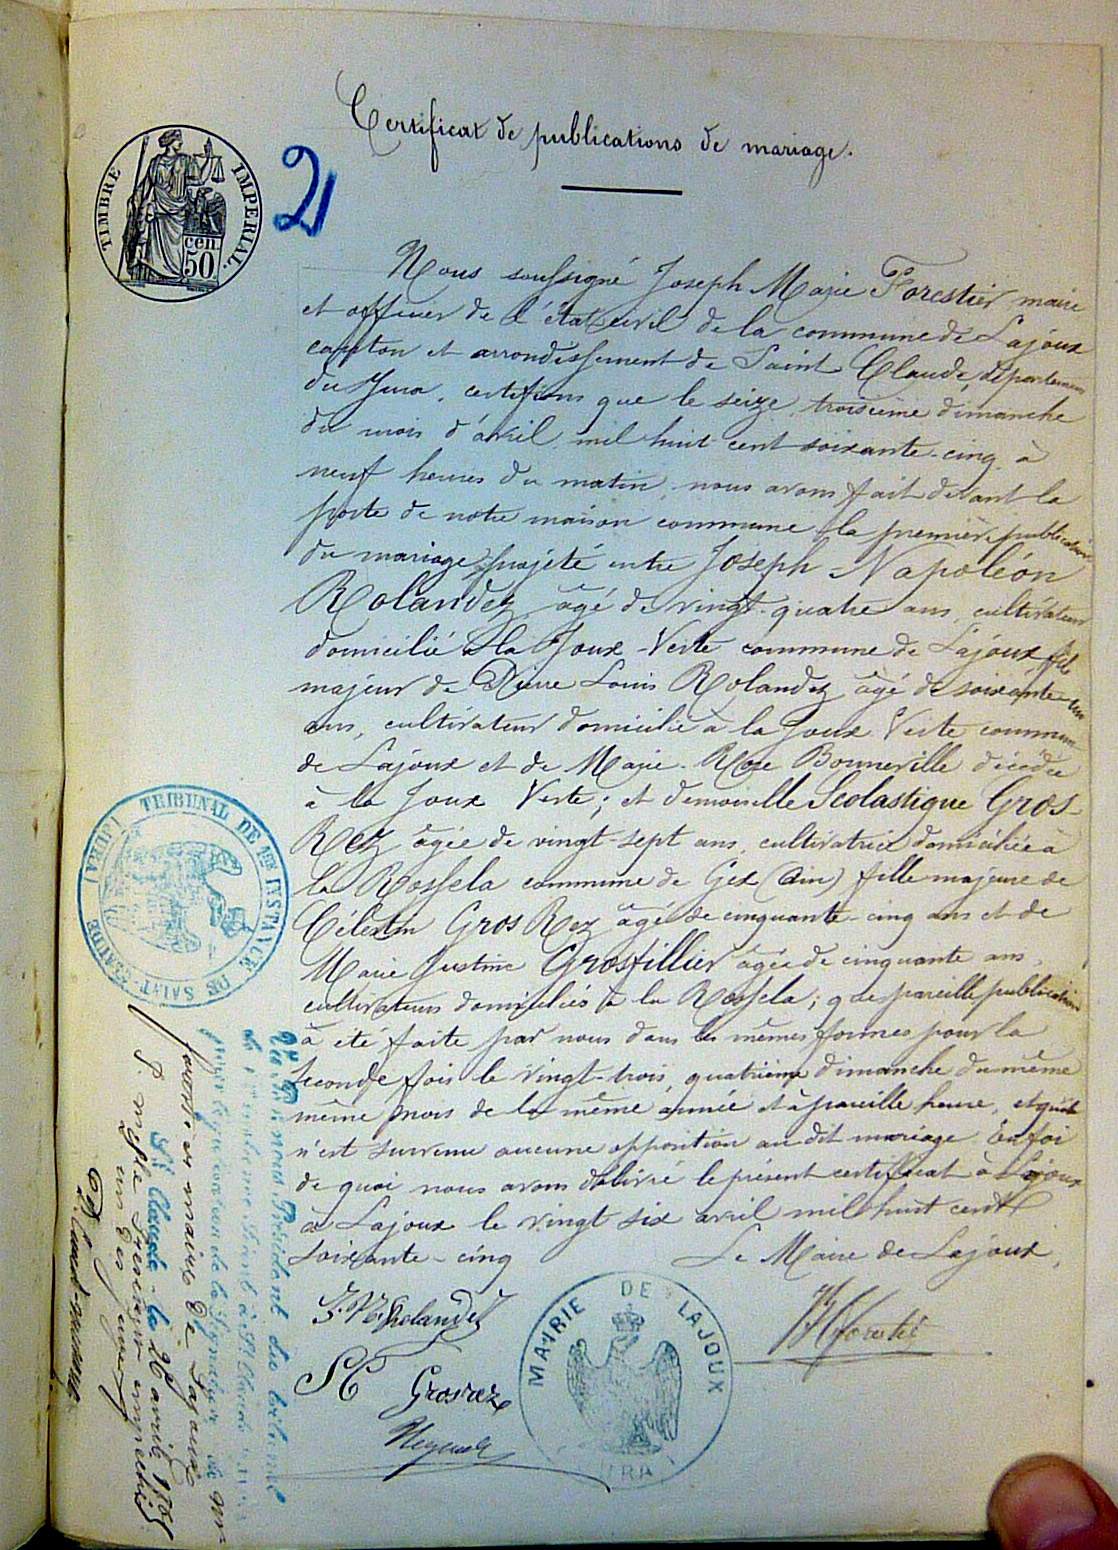 Certificat de publications de mariage.
TIMBRE IMPERIAL.
cen
50
21
Nous soussigné Joseph Marie Forestier maire
et officier de l'état civil de la commune de Lajoux
canton et arrondissement de Saint Claude, département
du Jura, certifions que le seize, troisième dimanche
du mois d'avril mil huit cent soixante-cinq à
neuf heures du matin, nous avons fait devant la
porte de notre maison commune la première publication
du mariage projété entre Joseph-Napoléon
Rolandez âgé de vingt-quatre ans, cultivateur
domicilié à la Joux-Verte commune de Lajoux fils
majeur de Pierre Louis Rolandez âgé de soixante-un
ans, cultivateur domicilié à la Joux Verte commune
de Lajoux et de Marie-Rose Bonneville décédée
à la Joux Verte; et demoiselle Scolastique Gros-
Rez âgée de vingt-sept ans, cultivatrice domiciliée à
la Rossela commune de Gex (Ain) fille majeure de
Célestin Gros Rez âgé de cinquante-cinq ans et de
Marie Justine Grosfillier âgée de cinquante ans,
cultivateurs domiciliés à la Rossela; que pareille publication
à été faite par nous dans les mêmes formes pour la
seconde fois le vingt-trois, quatrième dimanche du même
même mois de la même année et à pareille heure, et qu'il
n'est survenu aucune opposition au dit mariage. En foi
de quoi nous avons délivré le présent certificat à Lajoux
à Lajoux le vingt six avril mil huit cent
soixante-cinq
Le Maire de Lajoux,
J. N. Rolandez
Grosrez
MAIRIE DE LAJOUX
JURA
TRIBUNAL DE 1ERE INSTANCE DE SAINT-CLAUDE (JURA)
Vu par nous Président du tribunal
de première
pour légalisation de la signature de Mr
Forestier maire de Lajoux
St Claude le 26 avril 1865
P. empêché
un des juges